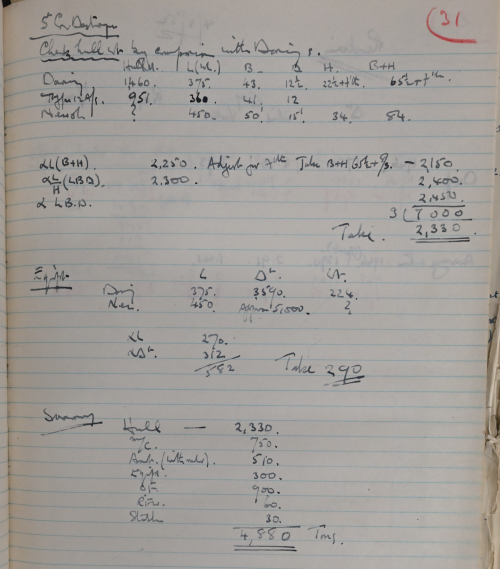 31
5" Gun Destroyer
Check hull wt by comparison with Darings.
Hull wt. L (WL.) B D H. B+H
Daring 1460. 375. 43. 12½. 22½+7'th. 65½+7'th.
951. 360. 41. 12
New ? 450. 50' 15' 34. 84.
αL(B+H) 2,250. Adjust for 7'th Take B+H 65½+ — 2,150
αL/H (LBD) 2,300. 2,400.
α LBD. 2,450
3 (7000
Take. 2,330
Equipt L Δt. Wt.
Daring 375. 3590. 224.
New. 450. Approx 5,000. ?
αL 270.
αΔt. 312
582 Take 290
Summary Hull — 2,330.
M/c. 750.
Armt. 510.
Equipt. 300.
O.F. 900.
60.
30.
4,880 Tons.